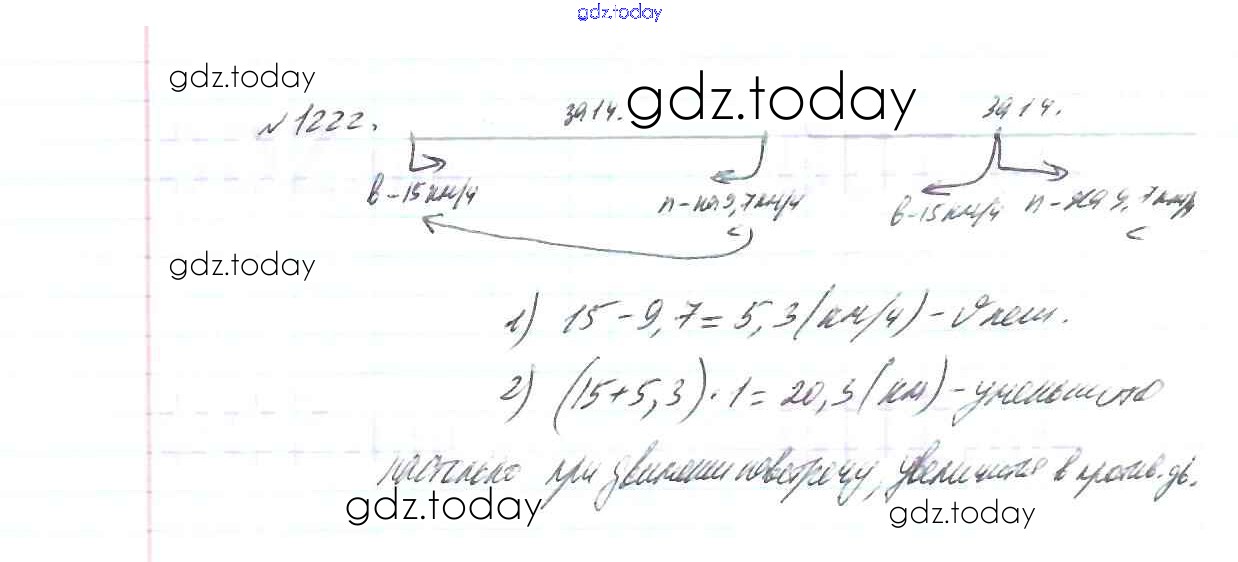 gdz.today
gdz.today
gdz.today
№1222.
за 1ч.
за 1ч.
в-15км/ч
п-на 9,7км/ч
<
в-15км/ч
п-на 9,7км/ч
<
gdz.today
1) 15-9,7=5,3(км/ч)-υ пеш.
2) (15+5,3)·1=20,3(км)-уменьшится
настолько при движении навстречу, увеличится в против.дв.
gdz.today
gdz.today